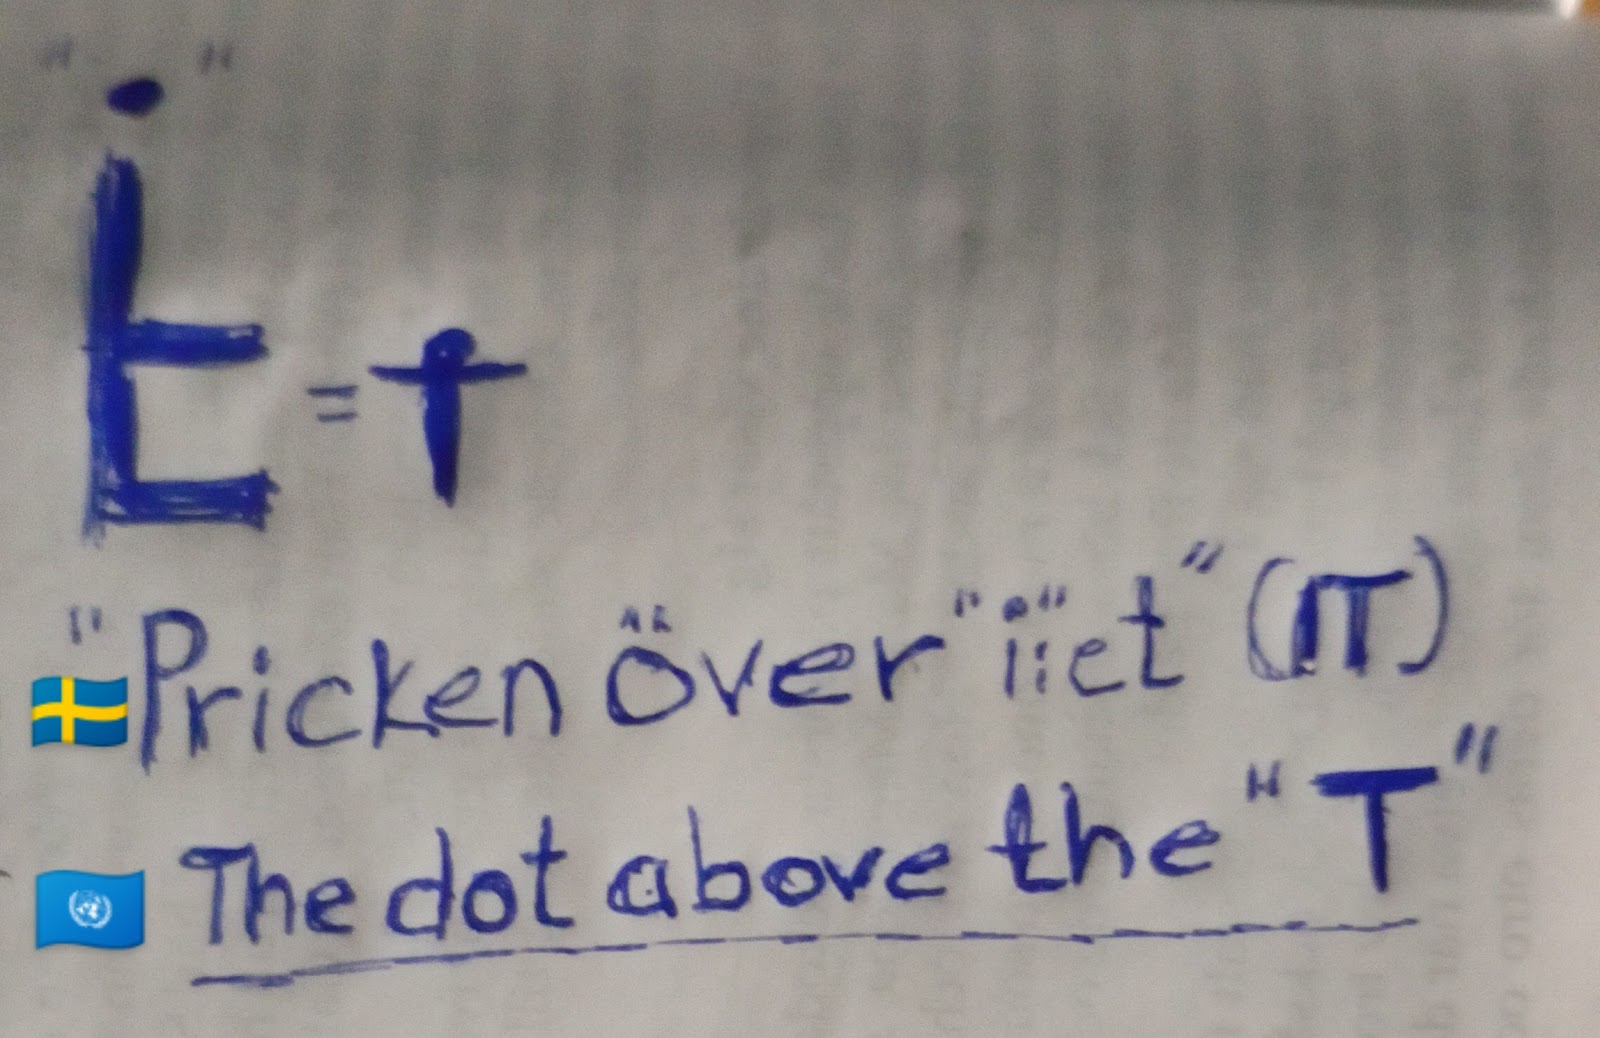 " • "
t = †
"Pricken över "iiet" (π)
The dot above the "T"